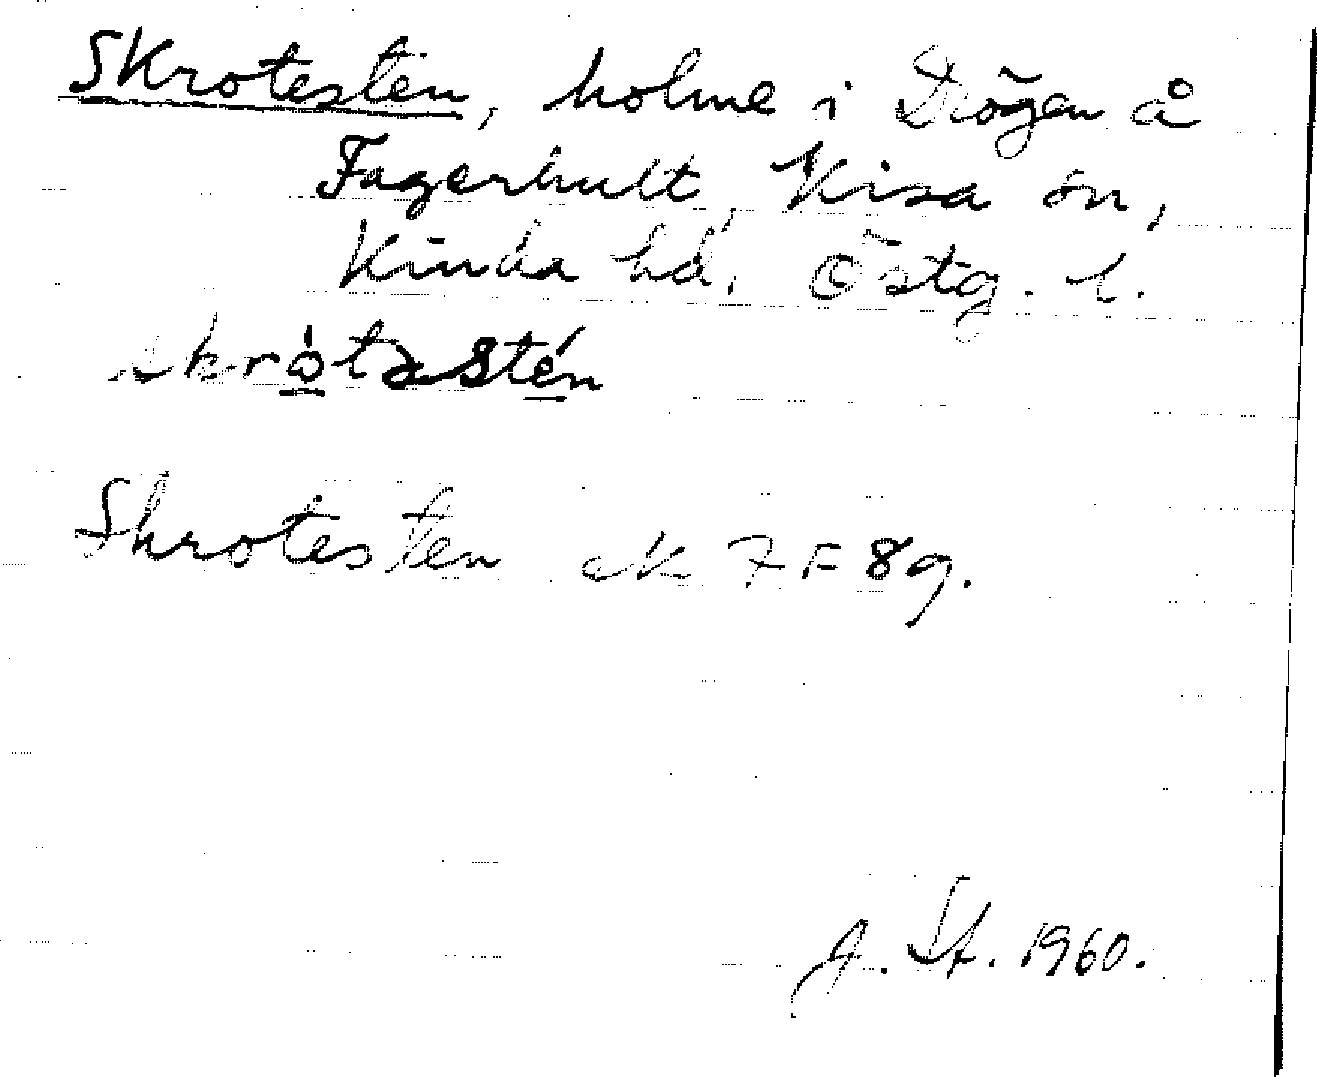 Skrotesten, holme i Drögen å
Fagerhult, Kisa sn,
Kinda hd. Östg. l.
skròtəstén
Skrotesten ek 7F8g.
A. St. 1960.